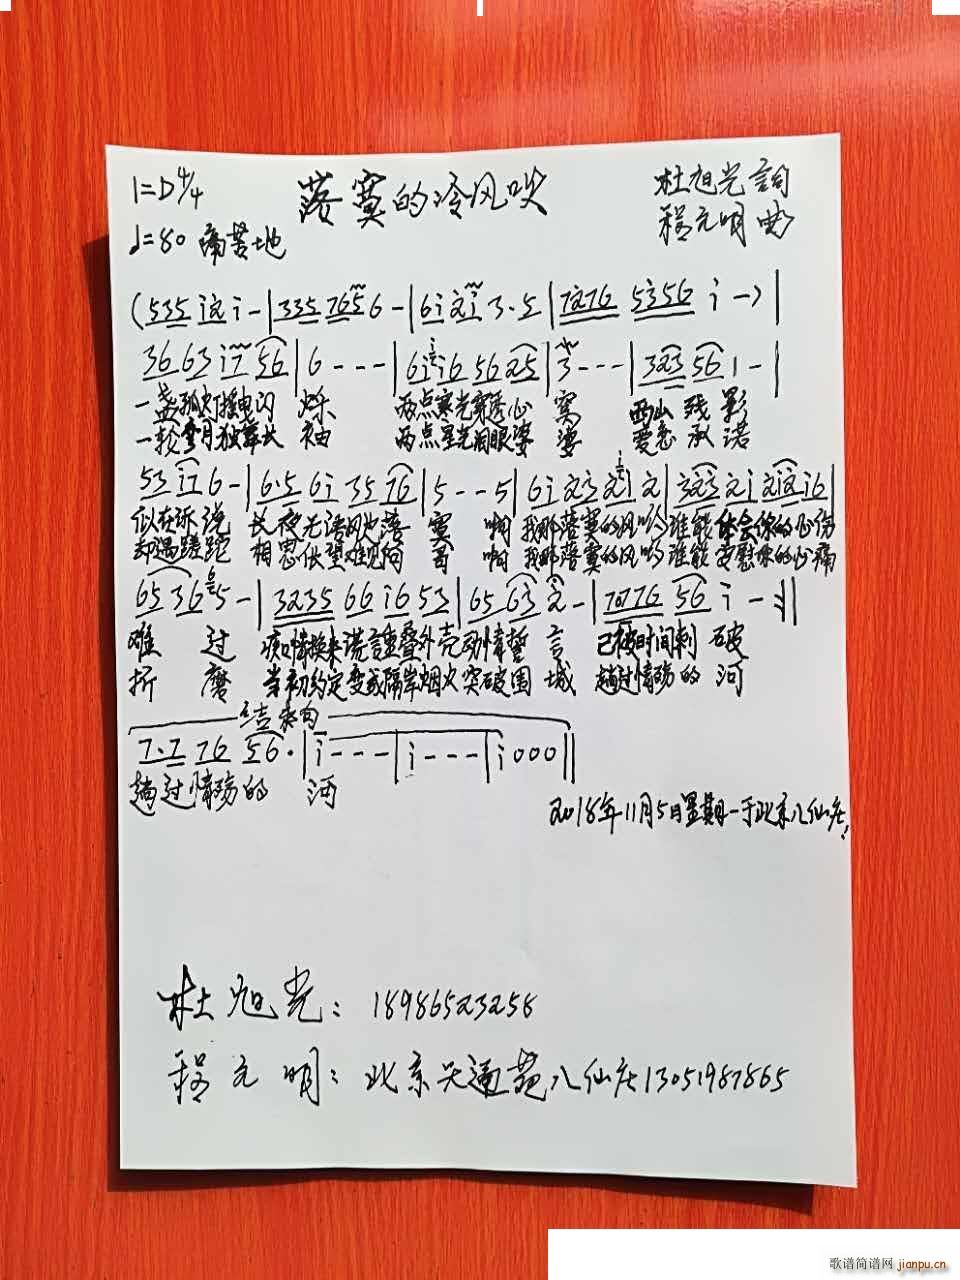 1=D 4/4 落寞的冷风吹 杜旭光詞
♩=80 痛苦地 程元明曲
(535 i2i i - | 335 765 6 - | 6i 2i 3·5 | 7276 5356 i -) |
36 63 i7 56 | 6 - - - | 6i i6 56 25 | 3 - - - | 323 56 1 - |
一盏孤灯摇曳闪 烁 两点寒光穿透心 窝 西山 残 影
一轮 月独舞长 袖 两点星光 眼婆 娑 承 诺
53 i7 6 - | 6·5 6i 35 76 | 5 - - 5 | 6i 23 2i 2 | 323 2i 2i2i6 |
似在诉 说 长夜无语风吹落 寞 啊 我那落寞的风吟谁能体会你的心伤
却遇蹉跎 相思 望难见 啊 我那落寞的风吟谁能 慰你的心痛
65 36 5 - | 3235 66 i6 53 | 65 63 2 - | 7276 56 i - :||
难 过 痴情换来谎言重叠外壳 情誓 言 已被时间刺 破
折 磨 当初约定变成隔岸烟火 突破围 城 趟过情殇的 河
结束句
7·7 76 56· | i - - - | i - - - | i 0 0 0 ||
趟过情殇的 河
2018年11月5日星期一于北京八仙庄
杜旭光：18986523258
程元明：北京天通苑八仙庄13051987865
歌谱简谱网 jianpu.cn